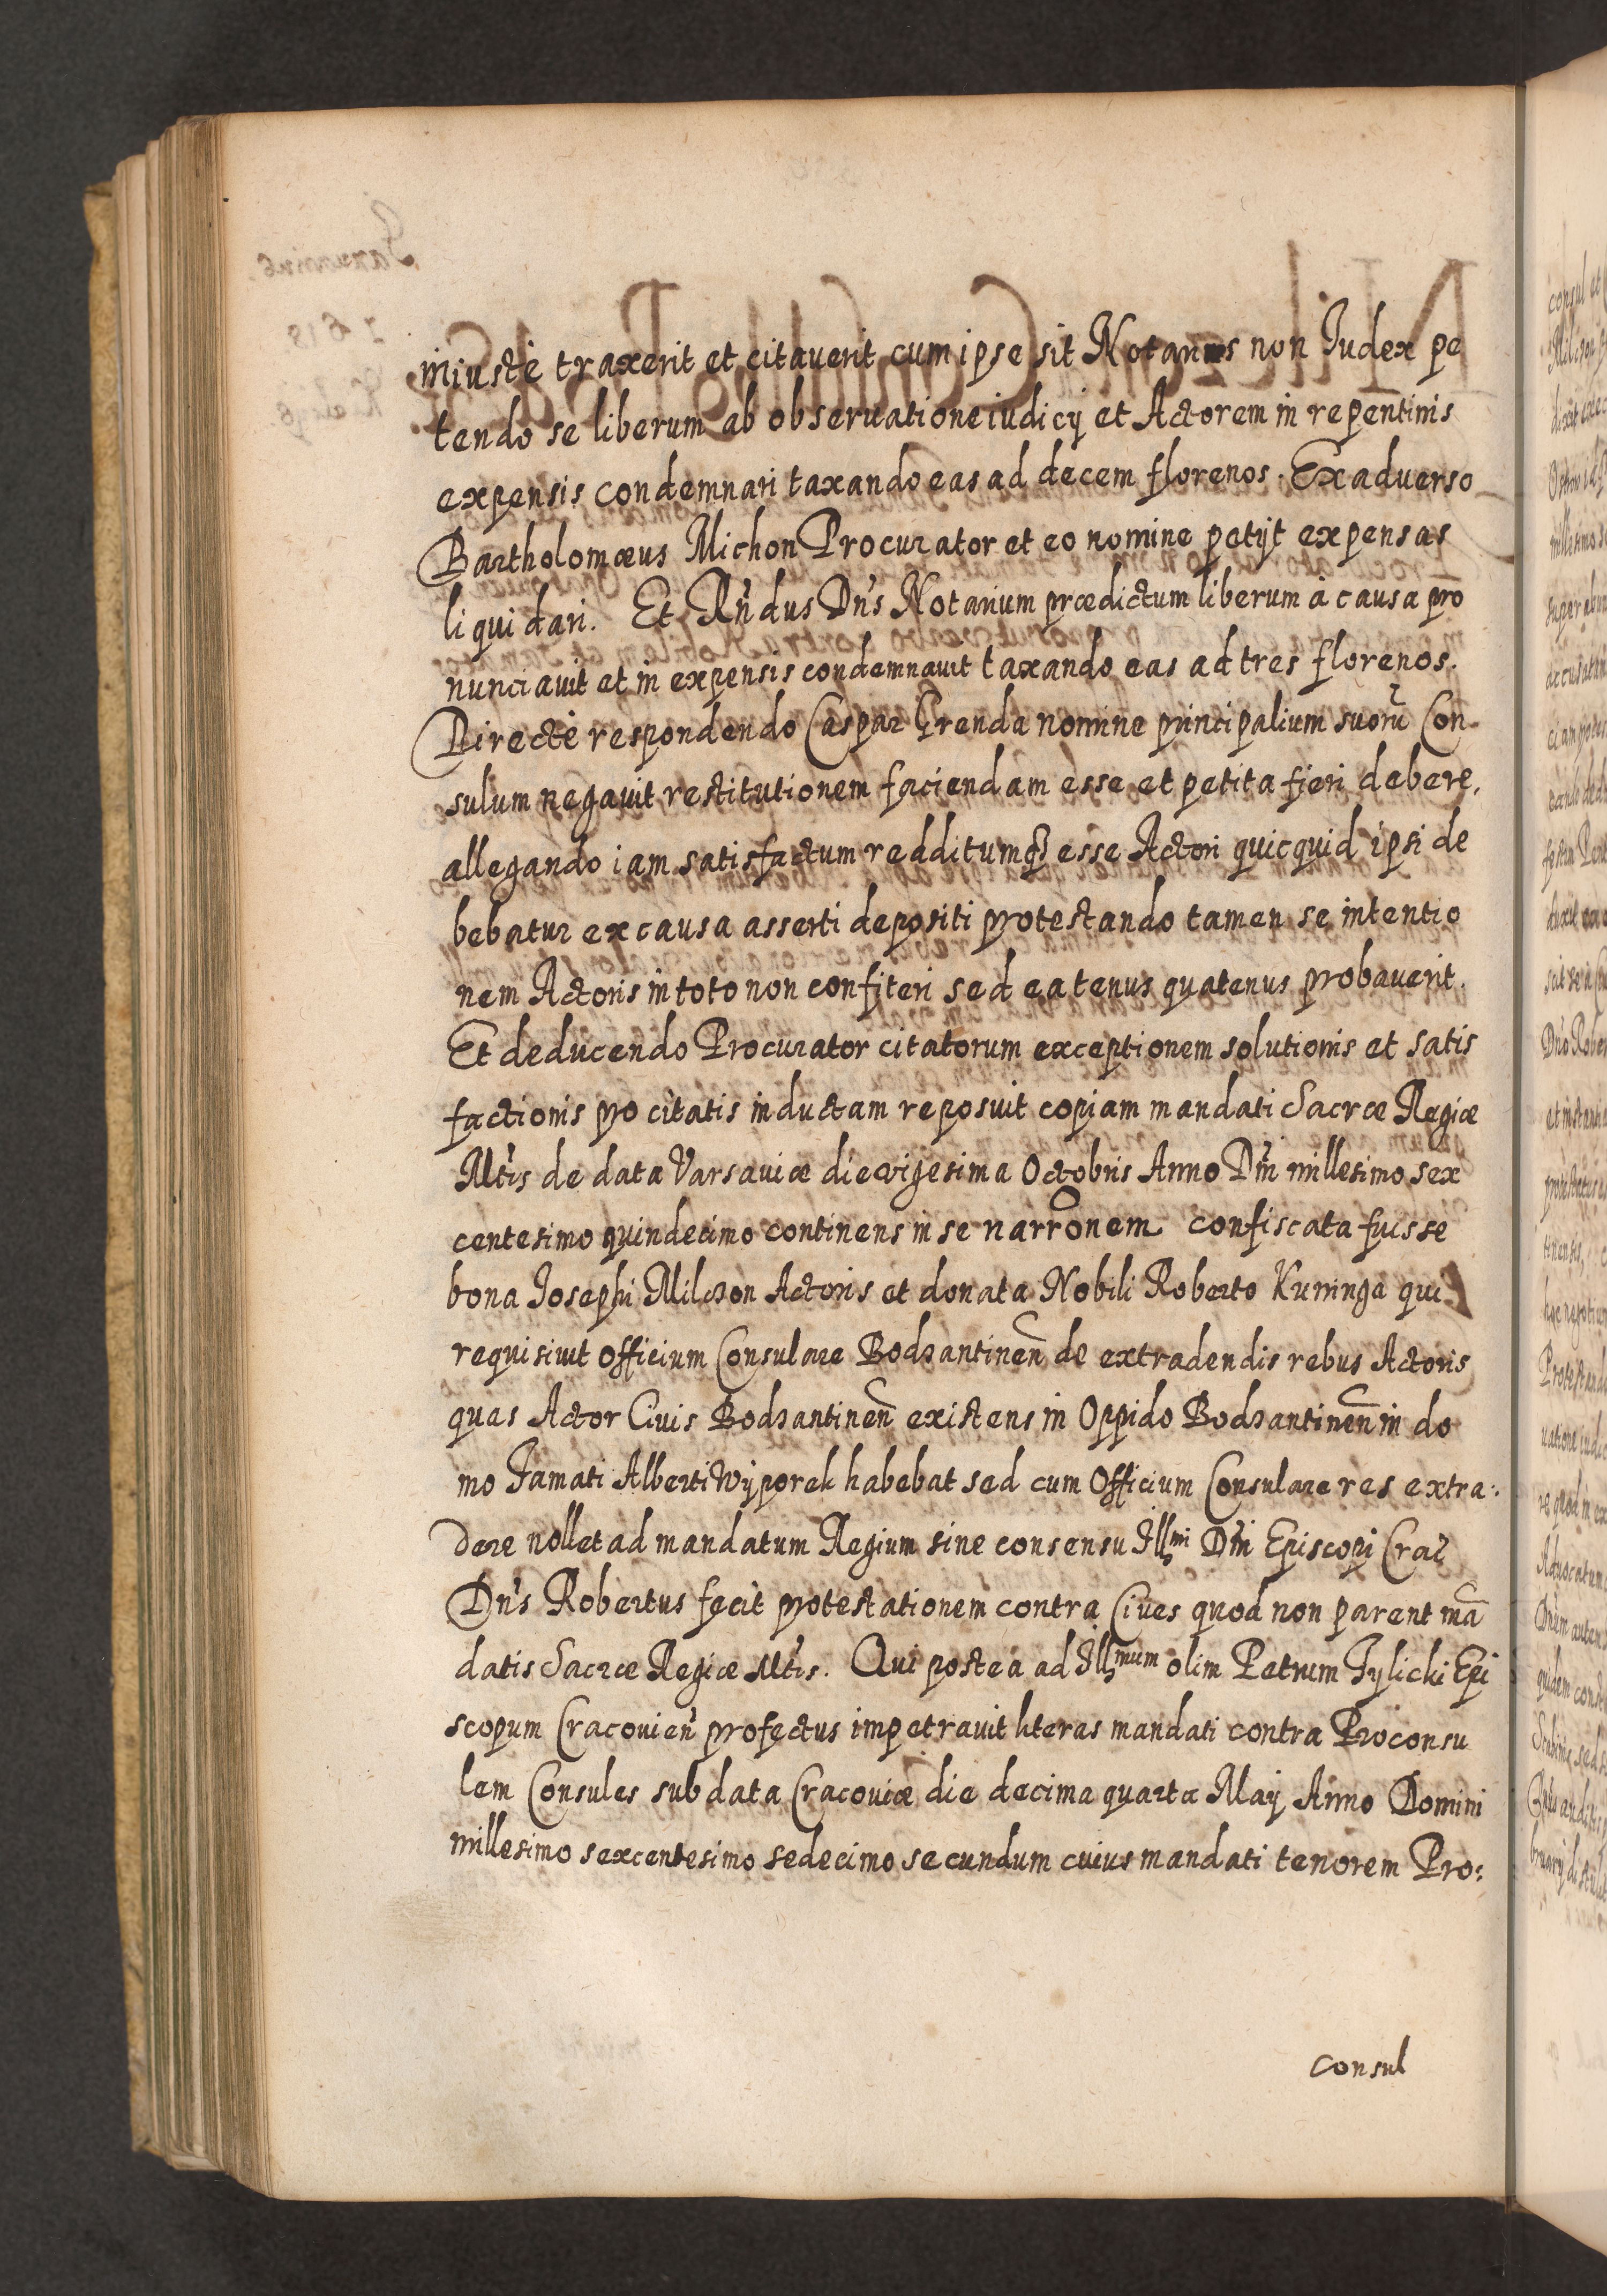 iniustè traxerit et citauerit cum ipse sit Notarius non Iudex pe
tendo se liberum ab obseruatione iudicij et Actorem in repentinis
expensis condemnari taxando eas ad decem florenos. Ex aduerso
Bartholomæus Michon Procurator et eo nomine petijt expensas
liquidari. Et Rńdus Dńs Notarium prædictum liberum à causa pro
nunciauit et in expensis condemnauit taxando eas ad tres florenos.
Directè respondendo Caspar Grenda nomine principalium suorũ Con-
sulum negauit restitutionem faciendam esse et petita fieri debere,
allegando iam satisfactum redditumq3 esse Actori quicquid ipsi de
bebatur ex causa asserti depositi protestando tamen se intentio
nem Actoris in toto non confiteri sed eatenus quatenus probaverit.
Et deducendo Procurator citatorum exceptionem solutionis et satis
factionis pro citatis inductam reposuit copiam mandati Sacræ Regiæ
Mtis de data Varsauiæ die vigesima Octobris Anno Dńi millesimo sex
centesimo quindecimo continens in se narrõnem confiscata fuisse
bona Josephi Milczon Actoris et donata Nobili Roberto Kuninga qui
requisiuit Officium Consulare Bodzantineñ de extradendis rebus Actoris
quas Actor Ciuis Bodzantineñ existens in Oppido Bodzantineñ in do
mo Famati Alberti Wyporek habebat sed cum Officium Consulare res extra:
dere nollet ad mandatum Regium sine consensu Illmi Dńi Episcopi Crac
Dńs Robertus fecit protestationem contra Ciues quod non parent mã
datis Sacræ Regiæ Mtis. Qui postea ad Illmum olim Petrum Tylicki Epi
scopum Cracouień profectus impetrauit literas mandati contra Proconsu
lem Consules sub data Cracouiæ die decima quarta Maij Anno Domini
millesimo sexcentesimo sedecimo secundum cuius mandati tenorem Pro:
consul